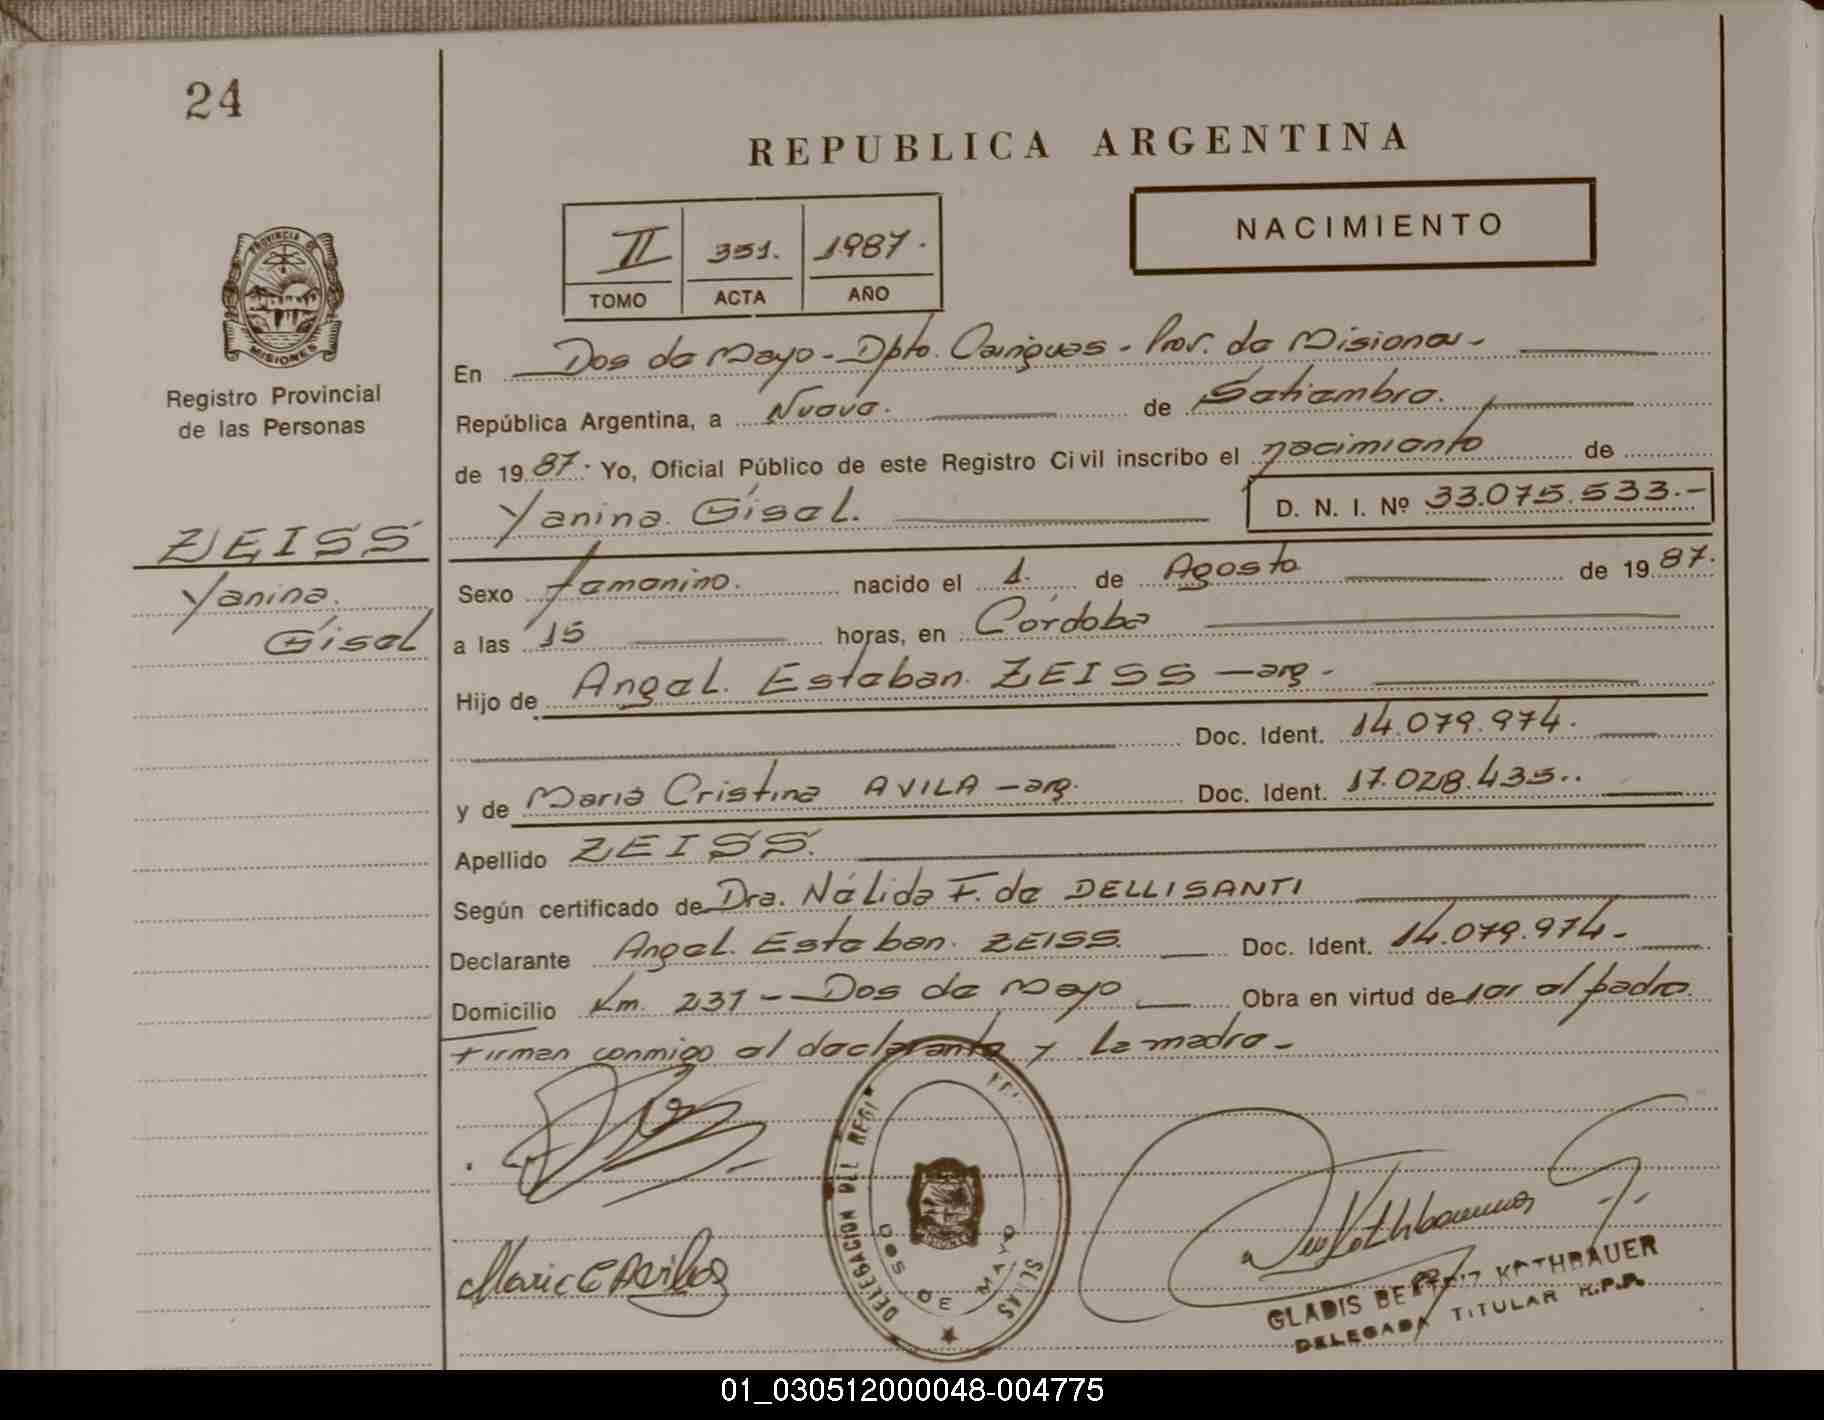 24
REPUBLICA ARGENTINA
NACIMIENTO
II 351. 1987.
TOMO ACTA AÑO
PROVINCIA DE
MISIONES
Registro Provincial
de las Personas
ZEISS
Yanina.
Gisel
En Dos de Mayo - Dpto. Cainguas - Prov. de Misiones -
República Argentina, a Nueve. de Setiembre.
de 1987. Yo, Oficial Público de este Registro Civil inscribo el nacimiento de
Yanina Gisel. D. N. I. Nº 33.075.533.-
Sexo femenino. nacido el 1. de Agosto de 1987.
a las 15 horas, en Córdoba
Hijo de Angel. Esteban. ZEISS - arg.
Doc. Ident. 14.079.974.
y de Maria Cristina AVILA - arg. Doc. Ident. 17.028.435..
Apellido ZEISS.
Según certificado de Dra. Nélida F. de DELLISANTI
Declarante Angel. Esteban. ZEISS. Doc. Ident. 14.079.974.
Domicilio Km. 231 - Dos de Mayo Obra en virtud de ser el padre.
Firman conmigo el declarante y la madre.
DELEGACION DEL REGI
SLAS
DOS DE MAYO
MISIONES
Maria C Avila
GLADIS BEATRIZ KATHBAUER
DELEGADA TITULAR R.P.P.
01_030512000048-004775